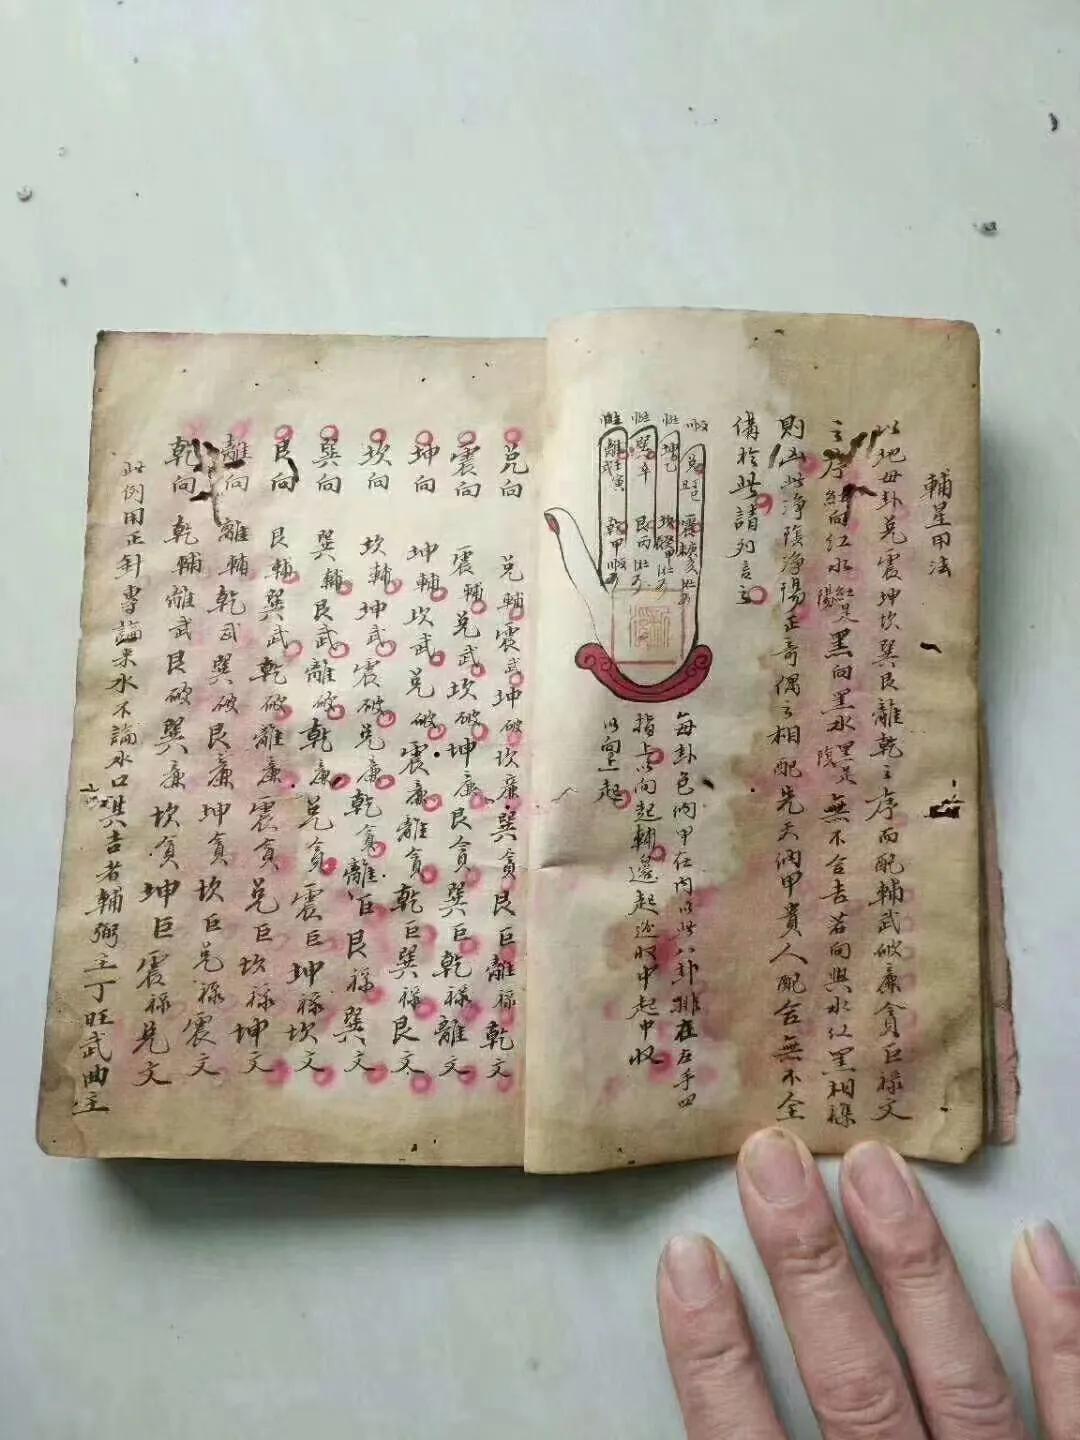 輔星用法
以地母卦兌震坤坎巽艮離乾之序而配輔武破廉貪巨祿文
之序紅向紅水紅是陽黑向黑水黑是陰無不合吉若向與水紅黑相襍
則凶此淨陰淨陽正奇偶之相配先天納甲貴人配合無不全
備於此請列言之
兌
巽辛
坤乙
離壬寅
乾甲
艮丙
每卦包納甲在內以此八卦排在左手四
指上以向起輔邊起邊收中起中收
以向上起
兌向 兌輔震武坤破坎廉巽貪艮巨離祿乾文
震向 震輔兌武坎破坤廉艮貪巽巨乾祿離文
坤向 坤輔坎武兌破震廉離貪乾巨巽祿艮文
坎向 坎輔坤武震破兌廉乾貪離巨艮祿巽文
巽向 巽輔艮武離破乾廉兌貪震巨坤祿坎文
艮向 艮輔巽武乾破離廉震貪兌巨坎祿坤文
離向 離輔乾武巽破艮廉坤貪坎巨兌祿震文
乾向 乾輔離武艮破巽廉坎貪坤巨震祿兌文
此例用正針專論來水不論水口其吉者輔弼主丁旺武曲主